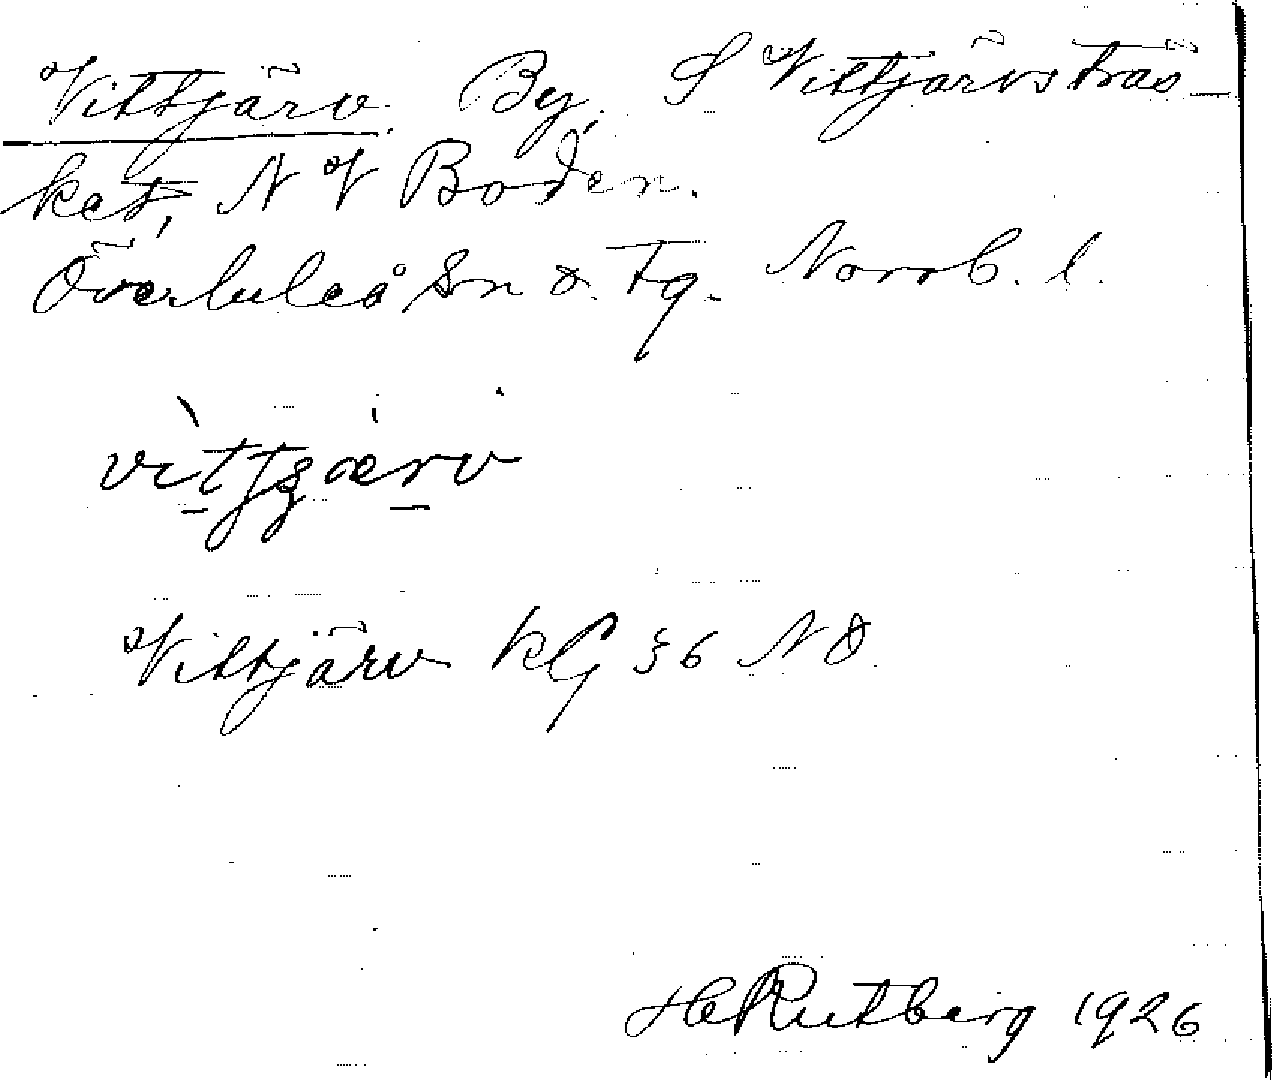 Vittjärv. By, S Vittjärvsträs-
ket, N V Boden.
Överluleå Sn o. Tg. Norrb. l.
Vittjärv KG §6 NO.
H Rutberg 1926